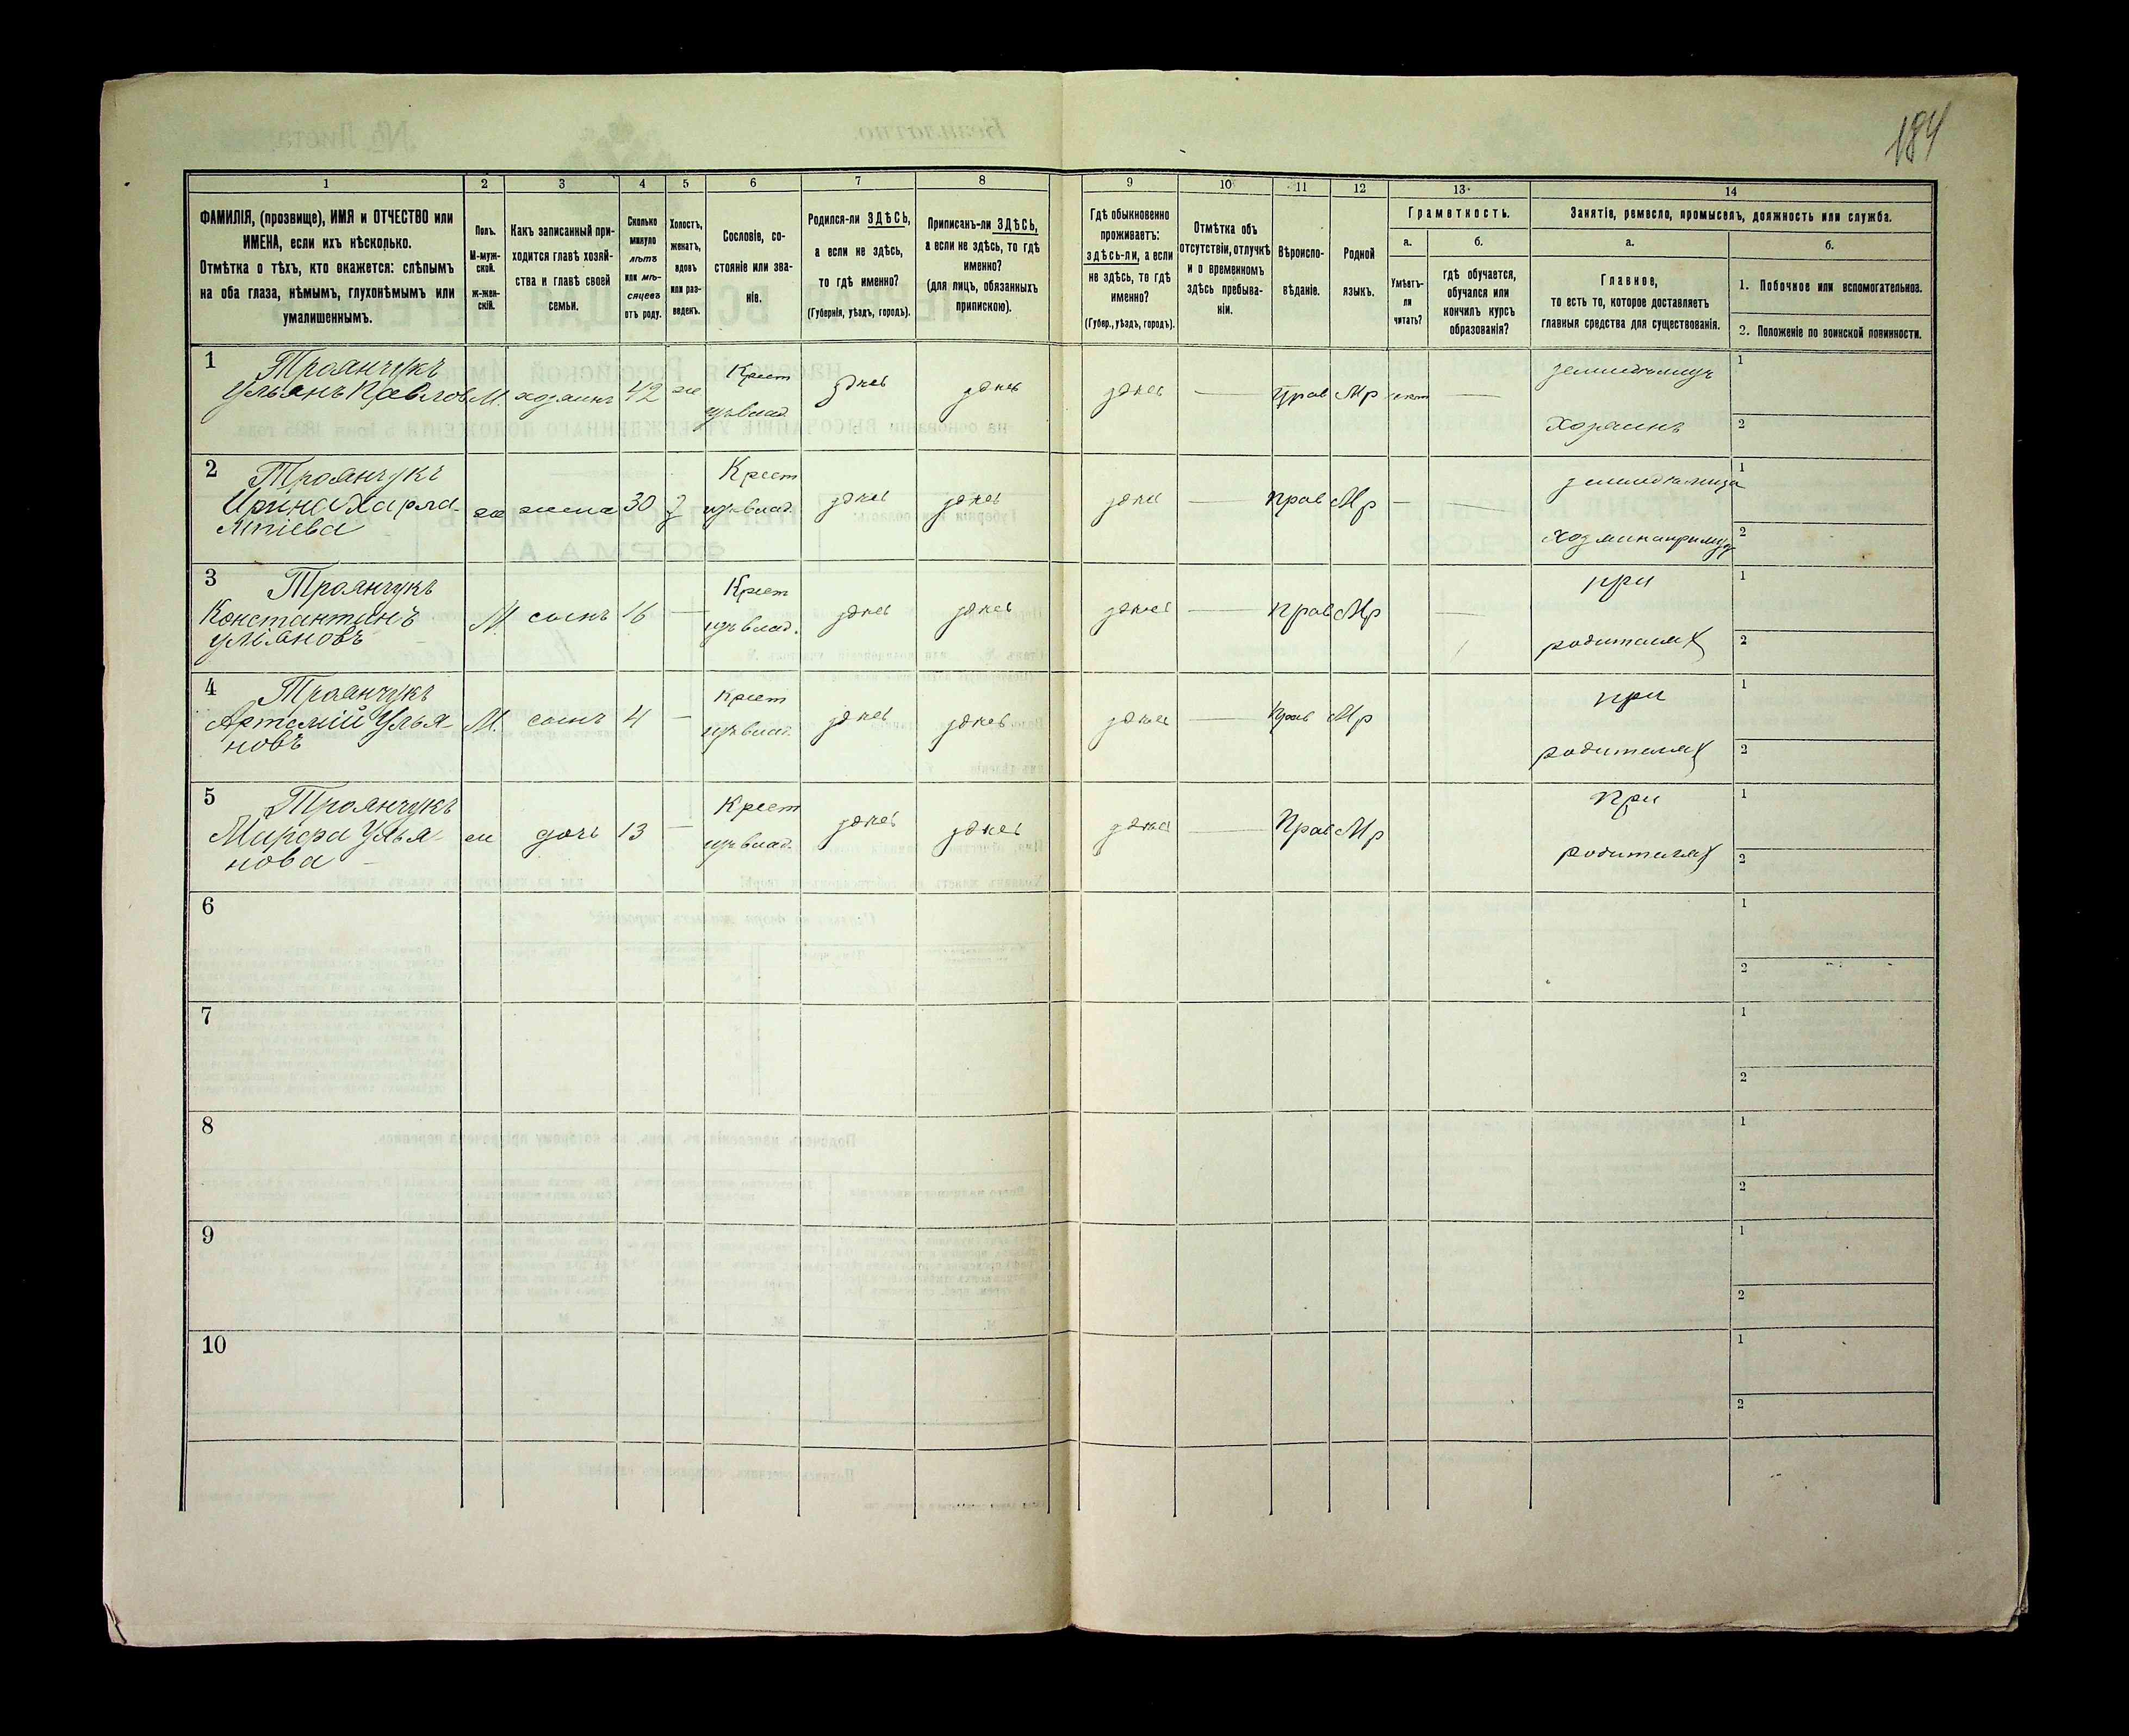 184
1 2 3 4 5 6 7 8 9 10 11 12 13 14
ФАМИЛІЯ, (прозвище), ИМЯ и ОТЧЕСТВО или
ИМЕНА, если ихъ нѣсколько.
Отмѣтка о тѣхъ, кто окажется: слѣпымъ
на оба глаза, нѣмымъ, глухонѣмымъ или
умалишеннымъ.
Полъ.
М-муж-
ской.
ж-жен-
скій.
Какъ записанный при-
ходится главѣ хозяй-
ства и главѣ своей
семьи.
Сколько
минуло
лѣтъ
или мѣ-
сяцевъ
отъ роду.
Холостъ,
женатъ,
вдовъ
или раз-
веденъ.
Сословіе, со-
стояніе или зва-
ніе.
Родился-ли ЗДѢСЬ,
а если не здѣсь,
то гдѣ именно?
(Губернія, уѣздъ, городъ).
Приписанъ-ли ЗДѢСЬ,
а если не здѣсь, то гдѣ
именно?
(для лицъ, обязанныхъ
припискою).
Гдѣ обыкновенно
проживаетъ:
здѣсь-ли, а если
не здѣсь, то гдѣ
именно?
(Губер., уѣздъ, городъ).
Отмѣтка объ
отсутствіи, отлучкѣ
и о временномъ
здѣсь пребыва-
ніи.
Вѣроиспо-
вѣданіе.
Родной
языкъ.
Грамотность.
а.
Умѣетъ-
ли
читать?
б.
гдѣ обучается,
обучался или
кончилъ курсъ
образованія?
Занятіе, ремесло, промыселъ, должность или служба.
а.
Главное,
то есть то, которое доставляетъ
главныя средства для существованія.
б.
1. Побочное или вспомогательное.
2. Положеніе по воинской повинности.
1 Троянчукъ
Ульянъ Павловъ М. хозяинъ 42 ж Крест
изъ влад. здѣсь здѣсь здѣсь — Прав Мр —
Хозяинъ
1
2
2 Троянчукъ
Ирина Харла-
мпіева ж жена 30 Крест
изъ влад. здѣсь здѣсь здѣсь — прав Мр — —
1
2
3 Троянчукъ
Константинъ
Уліановъ М. сынъ 16 — Крест
изъ влад. здѣсь здѣсь здѣсь — прав Мр — при
родителях
1
2
4 Троянчукъ
Артемій Улья-
новъ М. сынъ 4 — крест
изъ влад. здѣсь здѣсь здѣсь — Прав Мр при
родителях
1
2
5 Троянчукъ
Марфа Улья-
нова ж дочь 13 — Крест
изъ влад. здѣсь здѣсь здѣсь — Прав Мр при
родителях
1
2
6
1
2
7
1
2
8
1
2
9
1
2
10
1
2